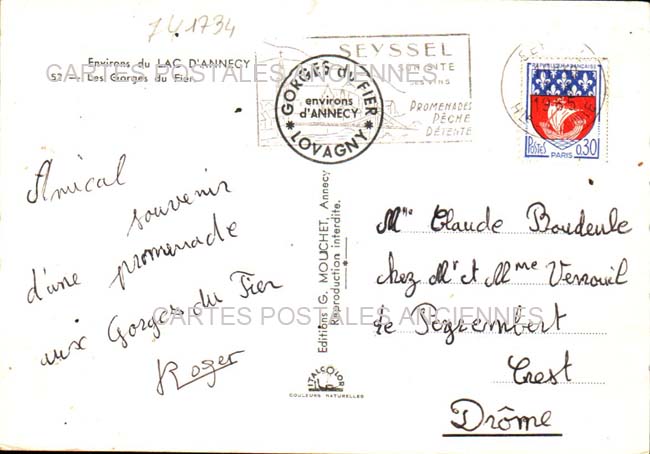 741734
Environs du LAC D'ANNECY
52 — Les Gorges du Fier
CARTES POSTALES ANCIENNES
SEYSSEL
SON SITE
SES VINS
PROMENADES
PÊCHE
DÉTENTE
GORGES du FIER
environs
d'ANNECY
LOVAGNY
POSTES
0,30
PARIS
Amical
souvenir
d'une promenade
aux Gorges du Fier
Roger
Editions G. MOUCHET, Annecy
Reproduction interdite.
ITALCOLOR
COULEURS NATURELLES
Mlle Claude Boudeule
chez Mr et Mme Verrouil
Le Pegrembert
Crest
Drôme
CARTES POSTALES ANCIENNES